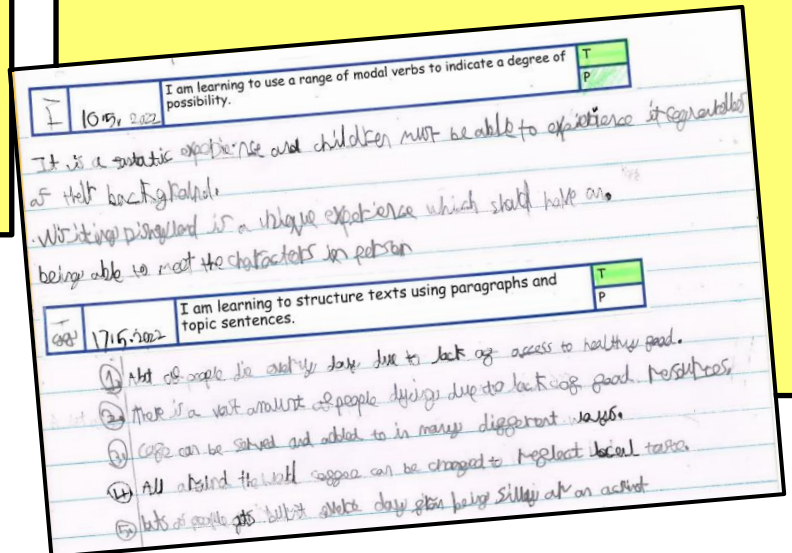 I am learning to use a range of modal verbs to indicate a degree of possibility.
T
P
I 10.5.2022
It is a expedience and children must be able to experience it
of their background.
is a unique experience which should have an.
being able to meet the characters in person
I am learning to structure texts using paragraphs and topic sentences.
T
P
17.5.2022
1. Alot of people die every day due to lack of access to healthy food.
2. there is a vast amount of people dying due to lack of food resources.
3. can be served and added to in many different ways.
4. All around the world coffee can be changed to reflect local taste.
5. lots of people day being silly